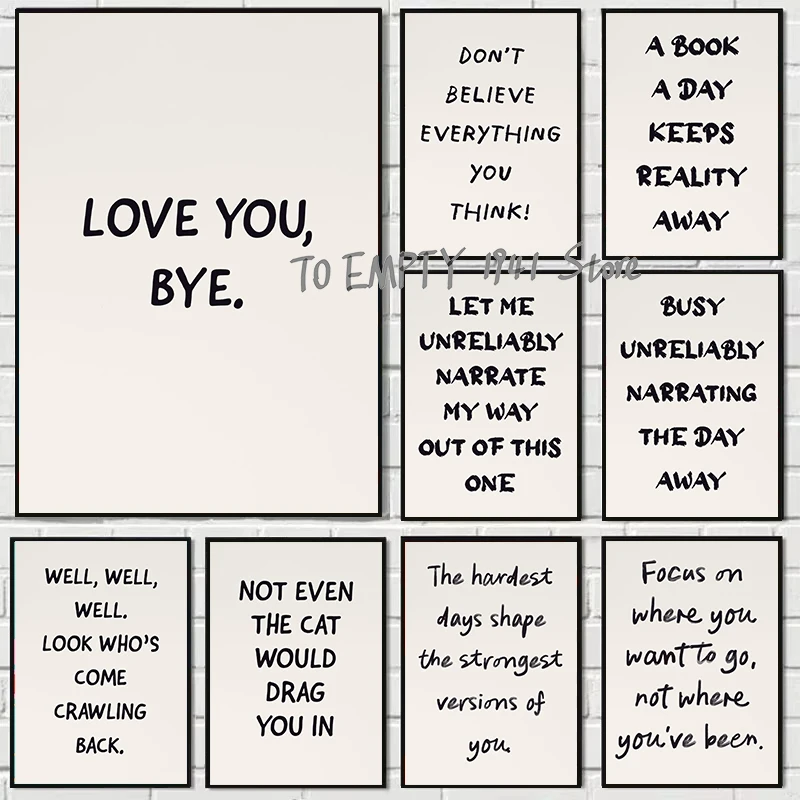 LOVE YOU,
BYE.
DON'T
BELIEVE
EVERYTHING
YOU
THINK!
A BOOK
A DAY
KEEPS
REALITY
AWAY
TO EMPTY 1941 Store
LET ME
UNRELIABLY
NARRATE
MY WAY
OUT OF THIS
ONE
BUSY
UNRELIABLY
NARRATING
THE DAY
AWAY
WELL, WELL,
WELL.
LOOK WHO'S
COME
CRAWLING
BACK.
NOT EVEN
THE CAT
WOULD
DRAG
YOU IN
The hardest
days shape
the strongest
versions of
you.
Focus on
where you
want to go,
not where
you've been.